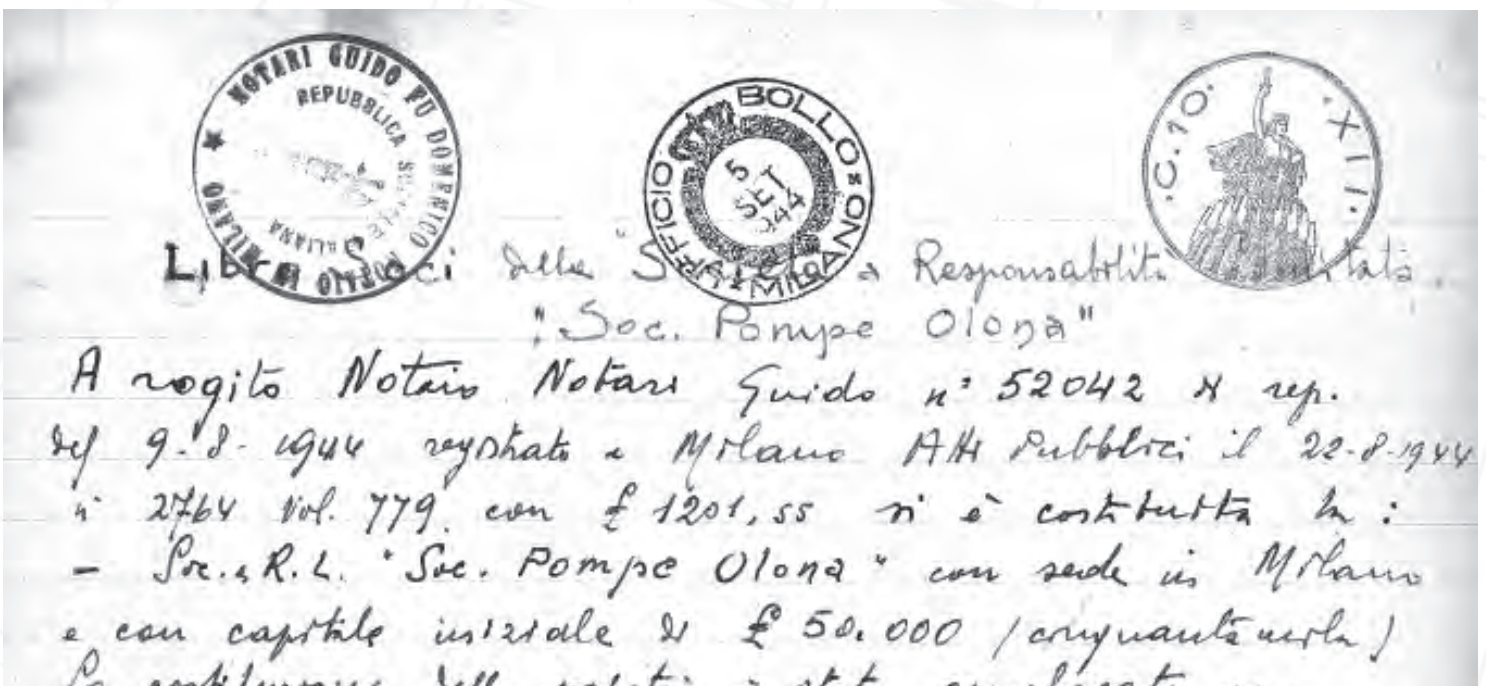 ★ NOTARI GUIDO FU DOMENICO NOTAIO IN MILANO
REPUBBLICA SOCIALE ITALIANA
UFFICIO BOLLO MILANO
5
SET
944
C.10. .XII.
Libro Soci della Società a Responsabilità Limitata
"Soc. Pompe Olona"
A rogito Notaio Notari Guido n° 52042 di rep.
del 9-8-1944 registrato a Milano Atti Pubblici il 22-8-1944
n° 2764 vol. 779 con £ 1201,55 si è costituita la :
- Soc. a R.L. "Soc. Pompe Olona" con sede in Milano
e con capitale iniziale di £ 50.000 (cinquantamila)
La costituzione della società è stata